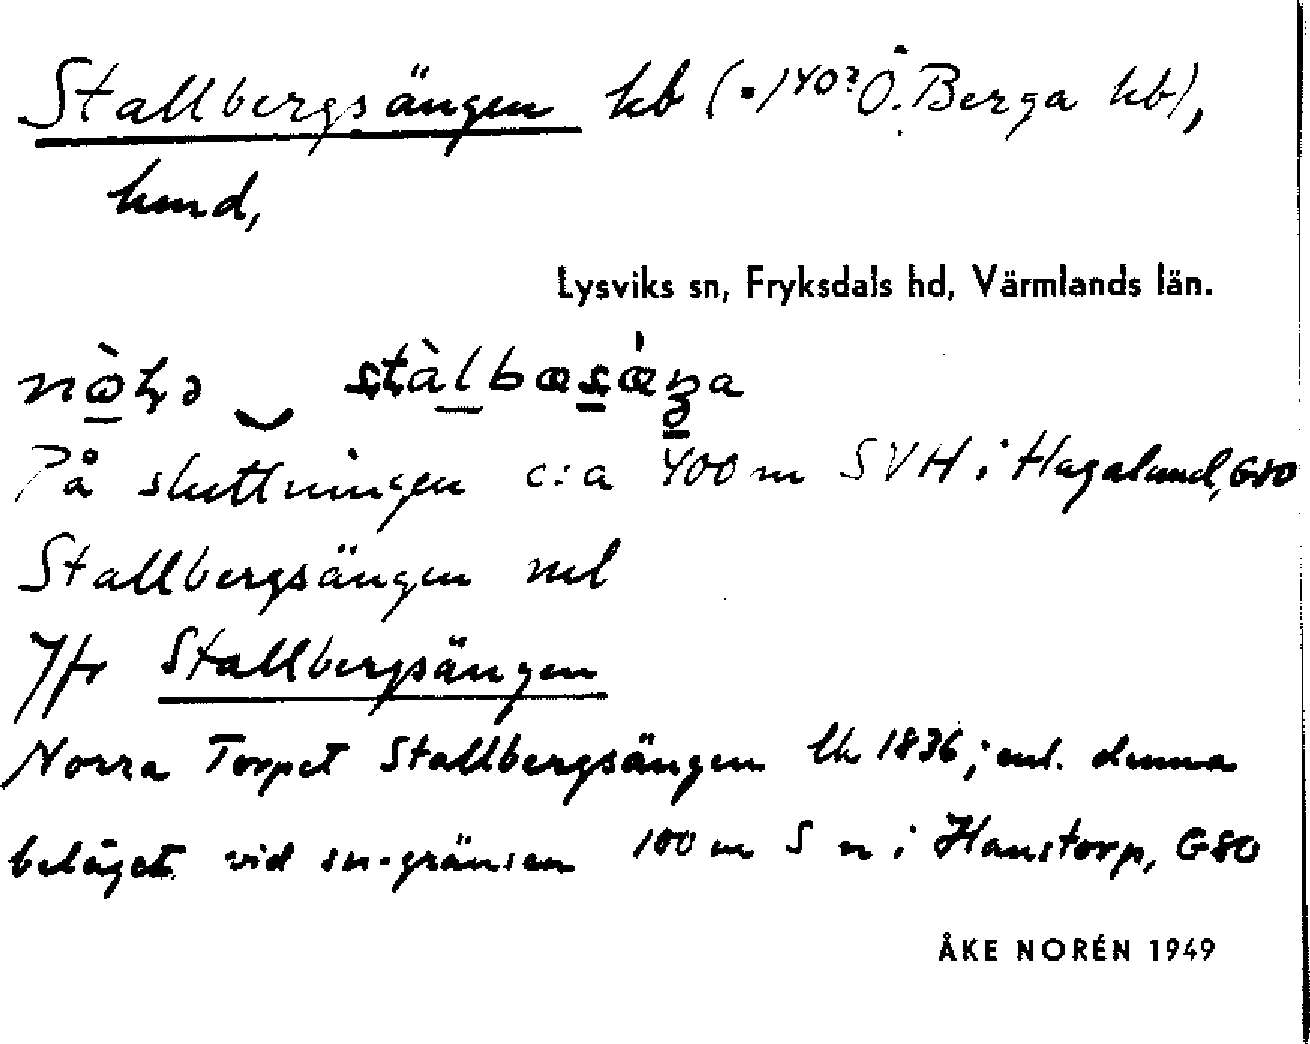 Stallbergsängen hb (1/40? Ö. Berga hb),
hmd,
Lysviks sn, Fryksdals hd, Värmlands län.
På sluttningen c:a 400 m SVH i Hagalund, G80
Stallbergsängen
Jfr Stallbergsängen
Norra Torpet Stallbergsängen lk 1836; enl. denna
beläget vid sn-gränsen 100 m S n i Hanstorp, G80
ÅKE NORÉN 1949